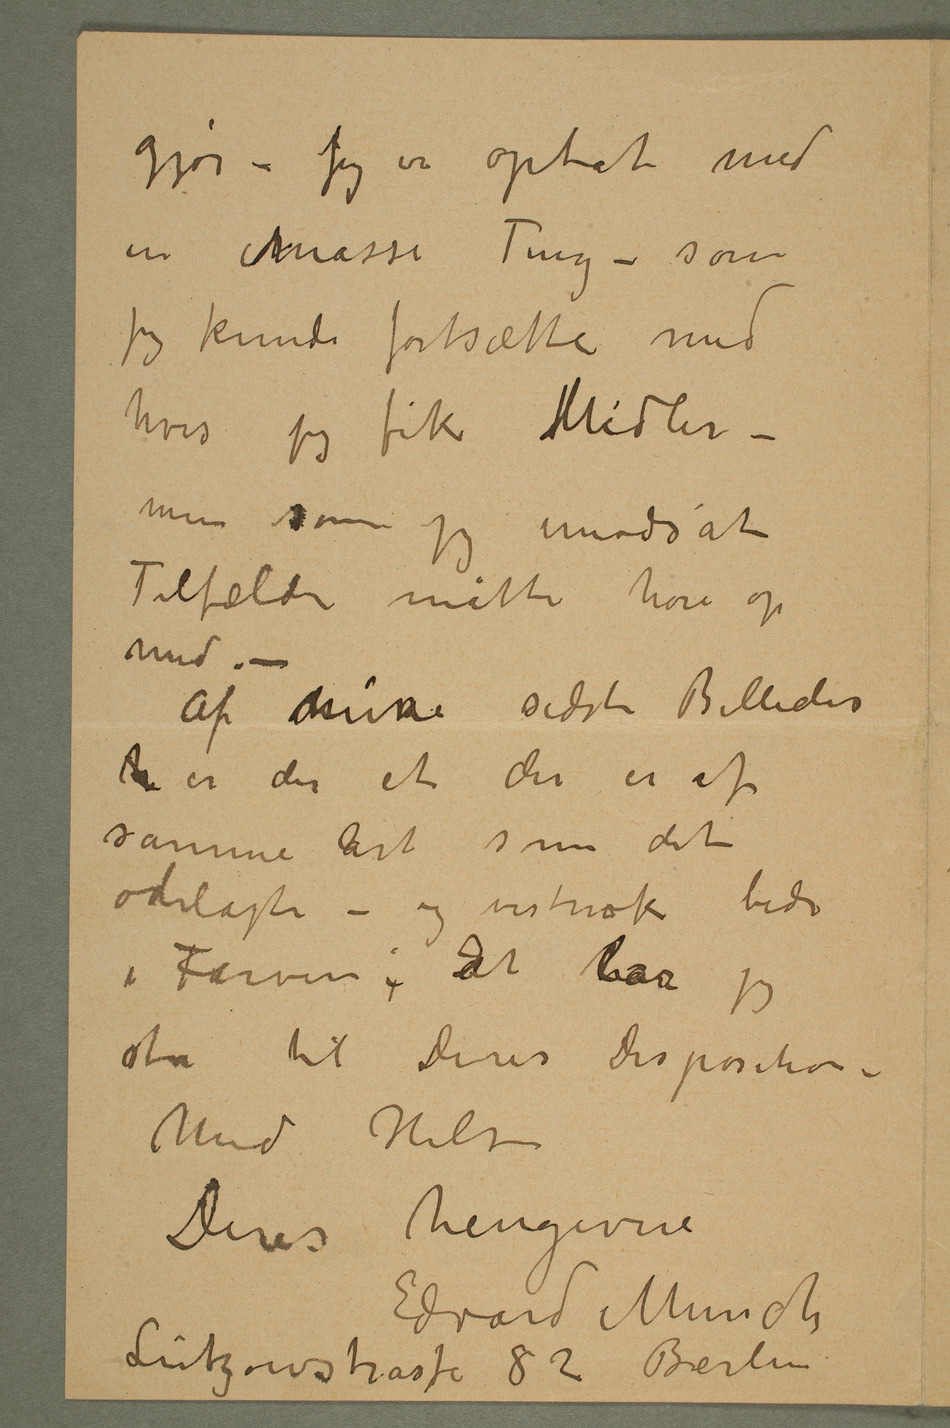 gjør – jeg er optat med
en Masse Ting – som
jeg kunde fortsætte med
hvis jeg fik Midler –
men som jeg i modsat
Tilfælde måtte høre op
med. –
Af mine sidste Billeder
er der et der er af
samme Art som det
ødelagte – og vistnok bedre
i Farven; Det lar jeg
stå til Deres Disposition –
Med Hilsen
Deres hengivne
Edvard Munch
Lützowstrasse 82 Berlin